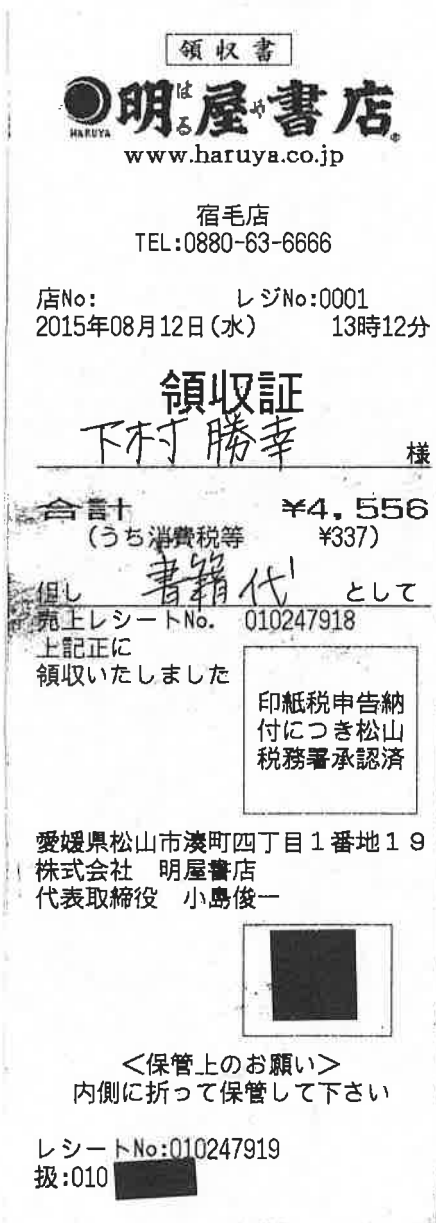 領収書
HARUYA
明屋書店
はる や
www.haruya.co.jp
宿毛店
TEL:0880-63-6666
店No: レジNo:0001
2015年08月12日(水) 13時12分
領収証
下村 勝幸 様
合計 ¥4,556
(うち消費税等 ¥337)
但し 書籍代 として
売上レシートNo. 010247918
上記正に
領収いたしました
印紙税申告納
付につき松山
税務署承認済
愛媛県松山市湊町四丁目1番地19
株式会社 明屋書店
代表取締役 小島俊一
<保管上のお願い>
内側に折って保管して下さい
レシートNo:010247919
扱:010